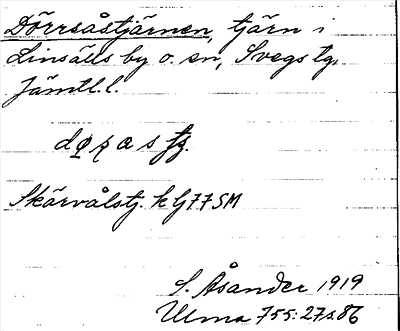 Dörrsåstjärnen, tjärn i
Linsälls by o. sn, Svegs tg,
Jämtl. l.
Skärvålstj. k G77SM
S. Åsander 1919
Ulma 755: 27 s. 86